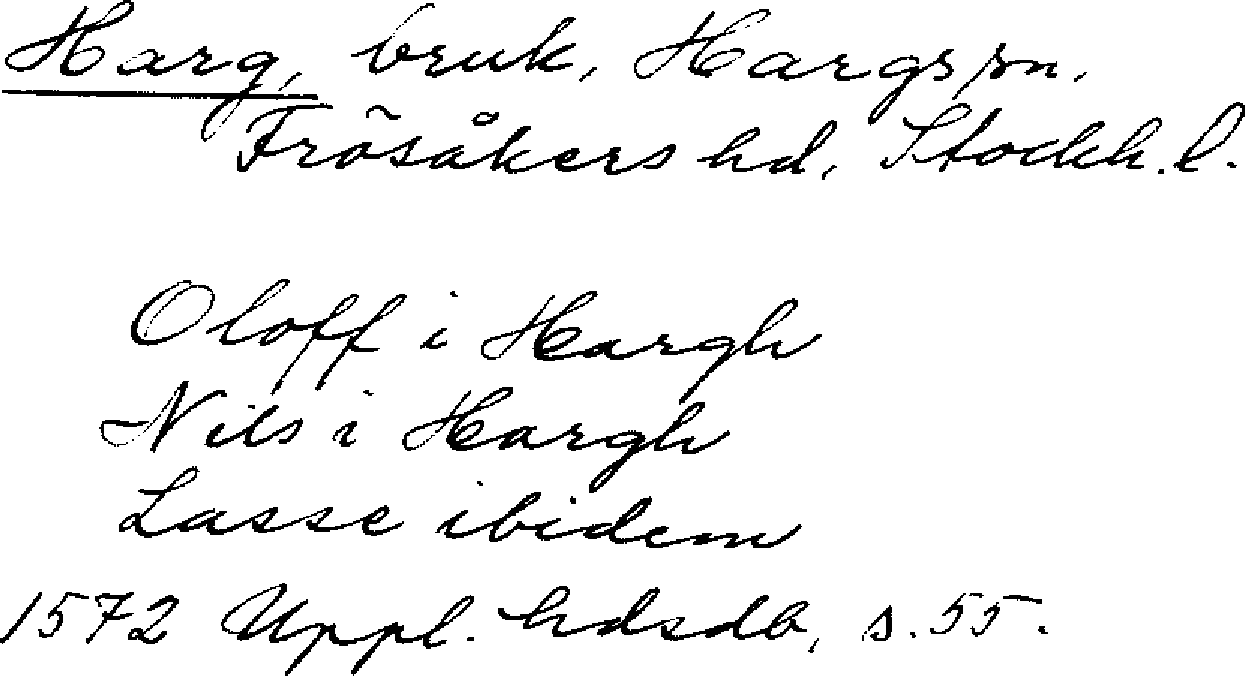 Harg, bruk, Hargs sn.
Frösåkers hd, Stockh. l.
Oloff i Hargh
Nils i Hargh
Lasse ibidem
1572 Uppl. hdsdb, s. 55.